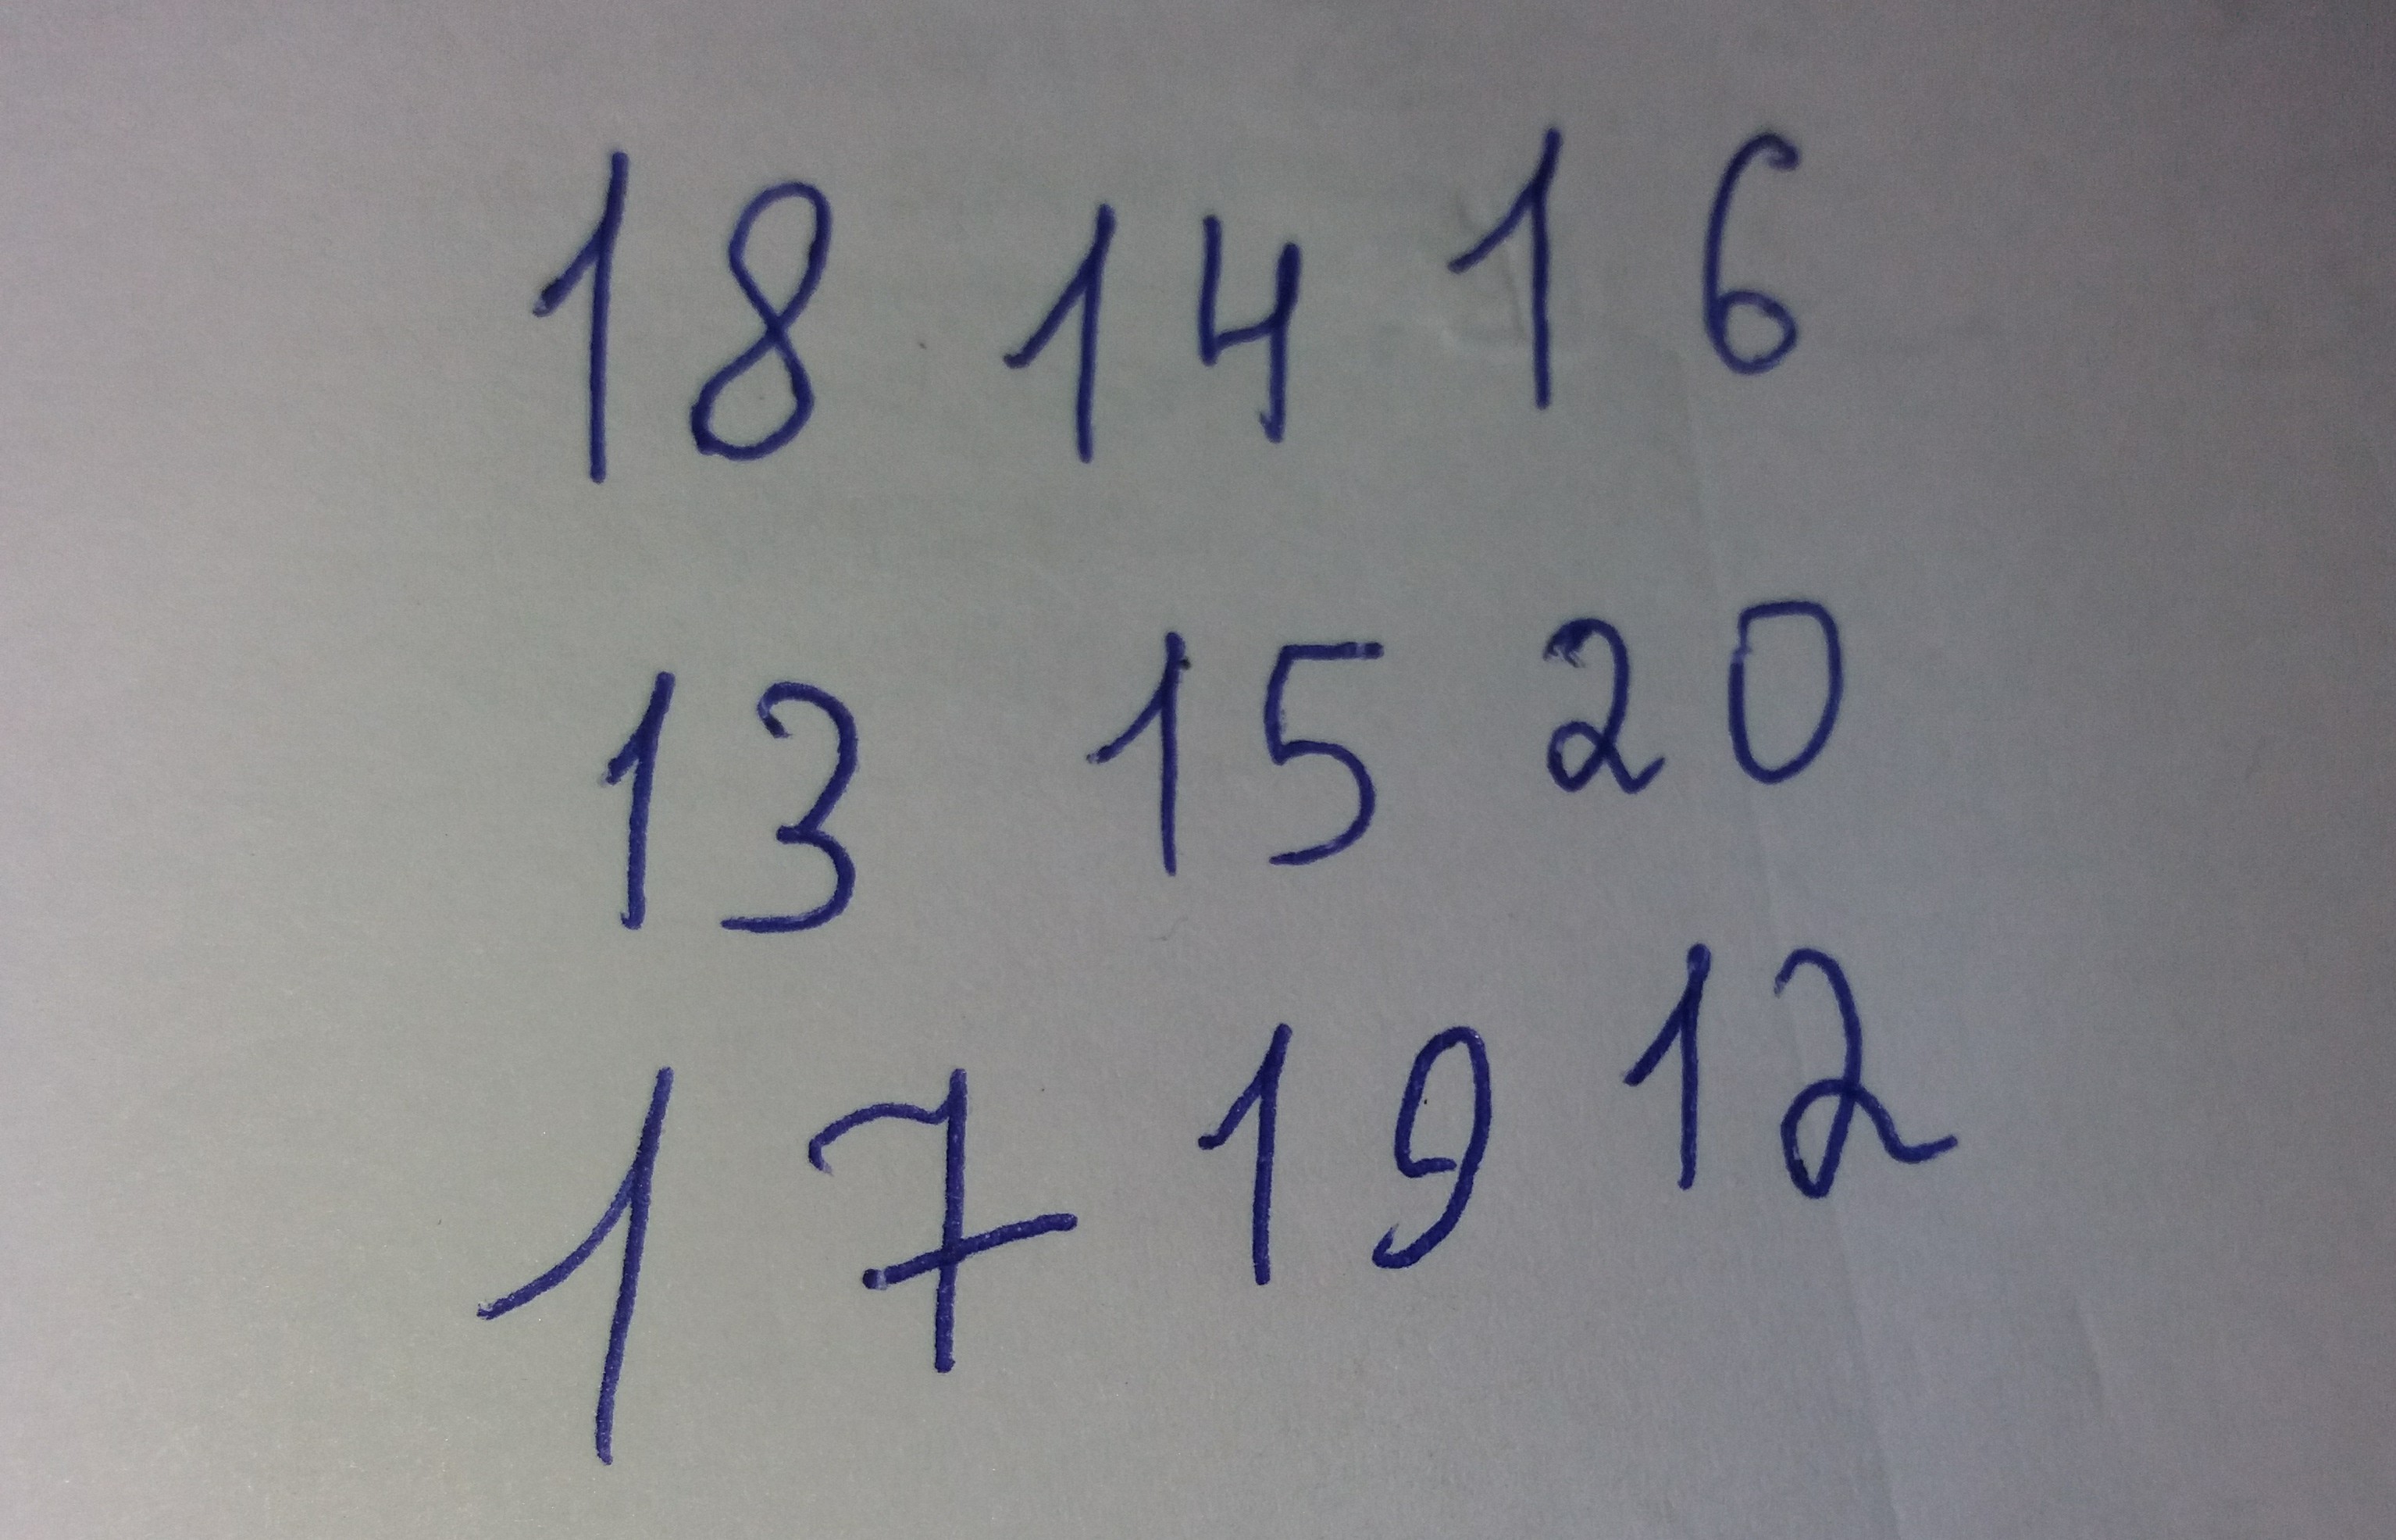 18 14 16
13 15 20
17 19 12